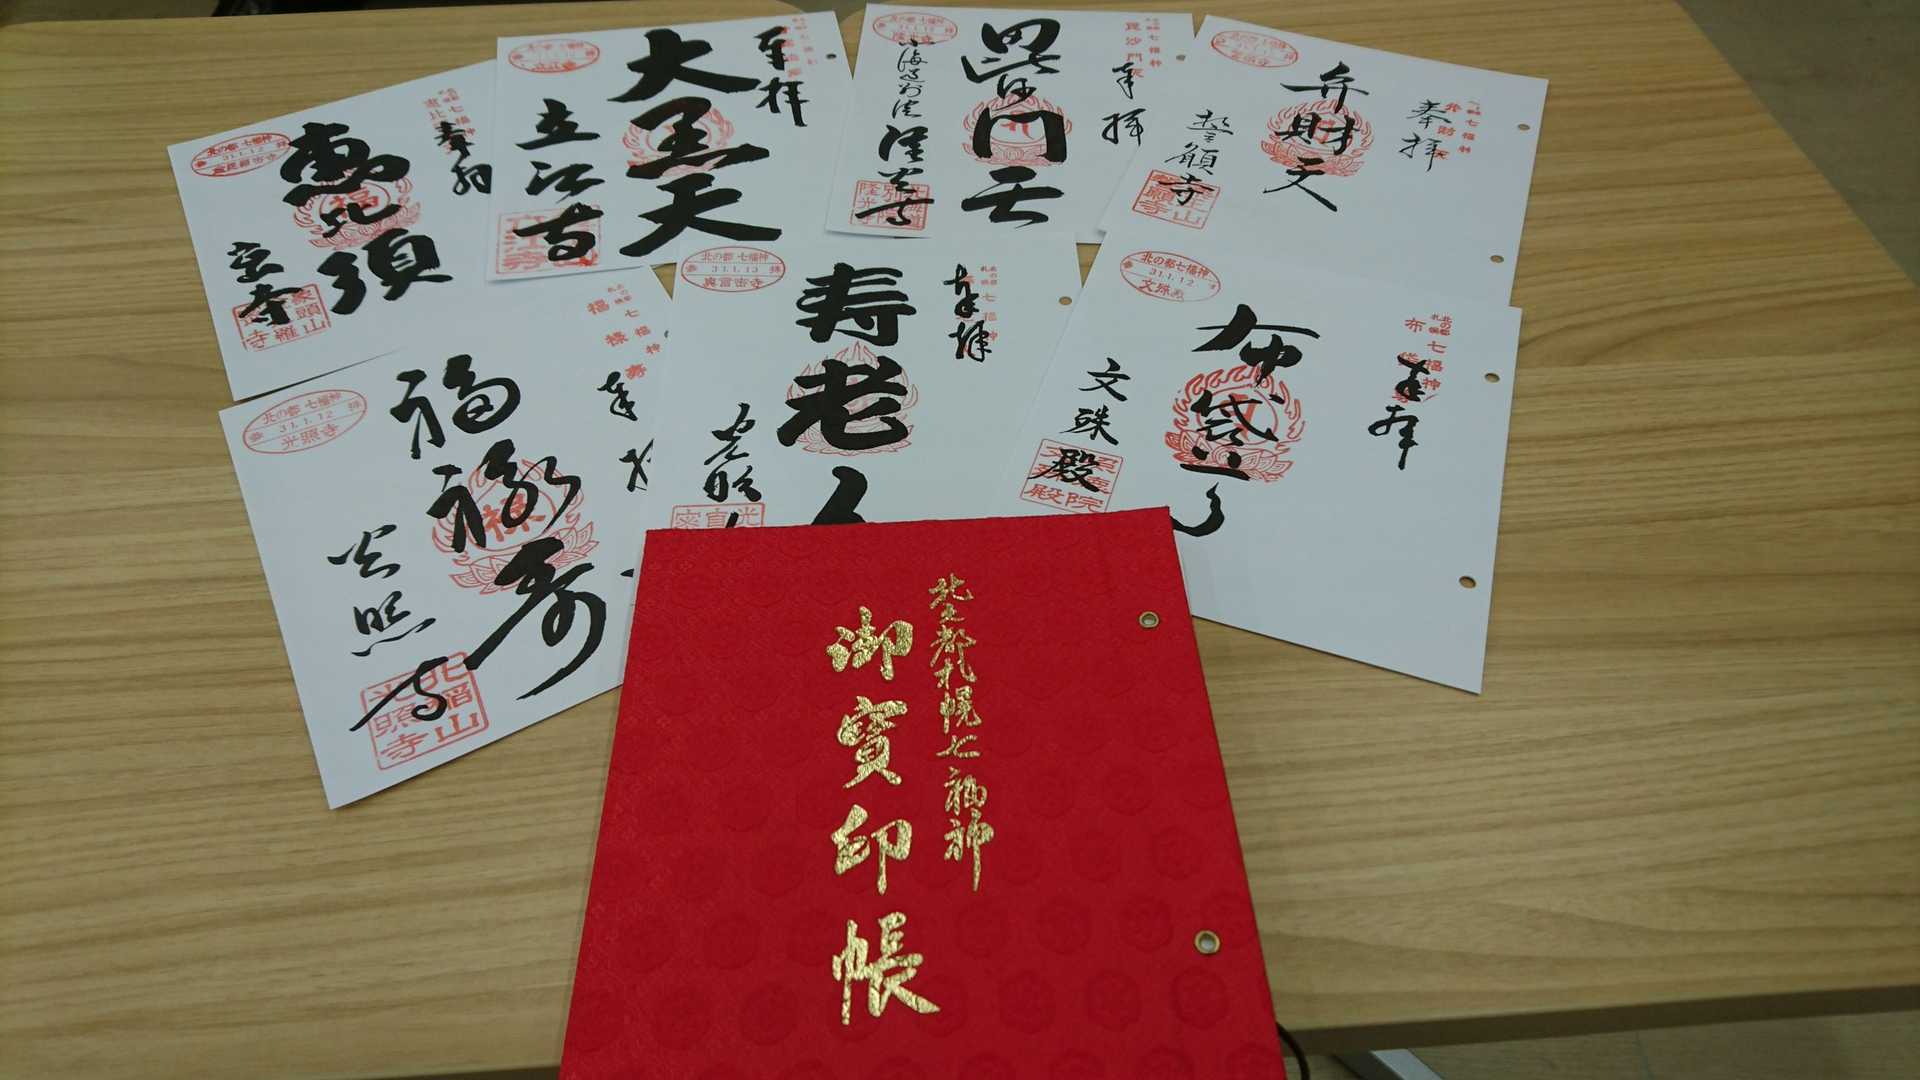 北の都 七福神
31.1.12
金毘羅密寺
奉拝
恵比須
密寺
象頭山
大黒天
奉拝
立江寺
毘沙門天
奉拝
毘沙門天
北海道別院
隆光寺
弁財天
奉拝
誓願寺
北の都 七福神
31.1.12
光照寺
福禄寿
福禄寿
光照寺
光照寺
北の都 七福神
31.1.13
真言密寺
寿老人
奉拝
北の都七福神
31.1.12
文殊殿
布袋尊
奉拝
文殊殿
北の都札幌七福神
御寳印帳